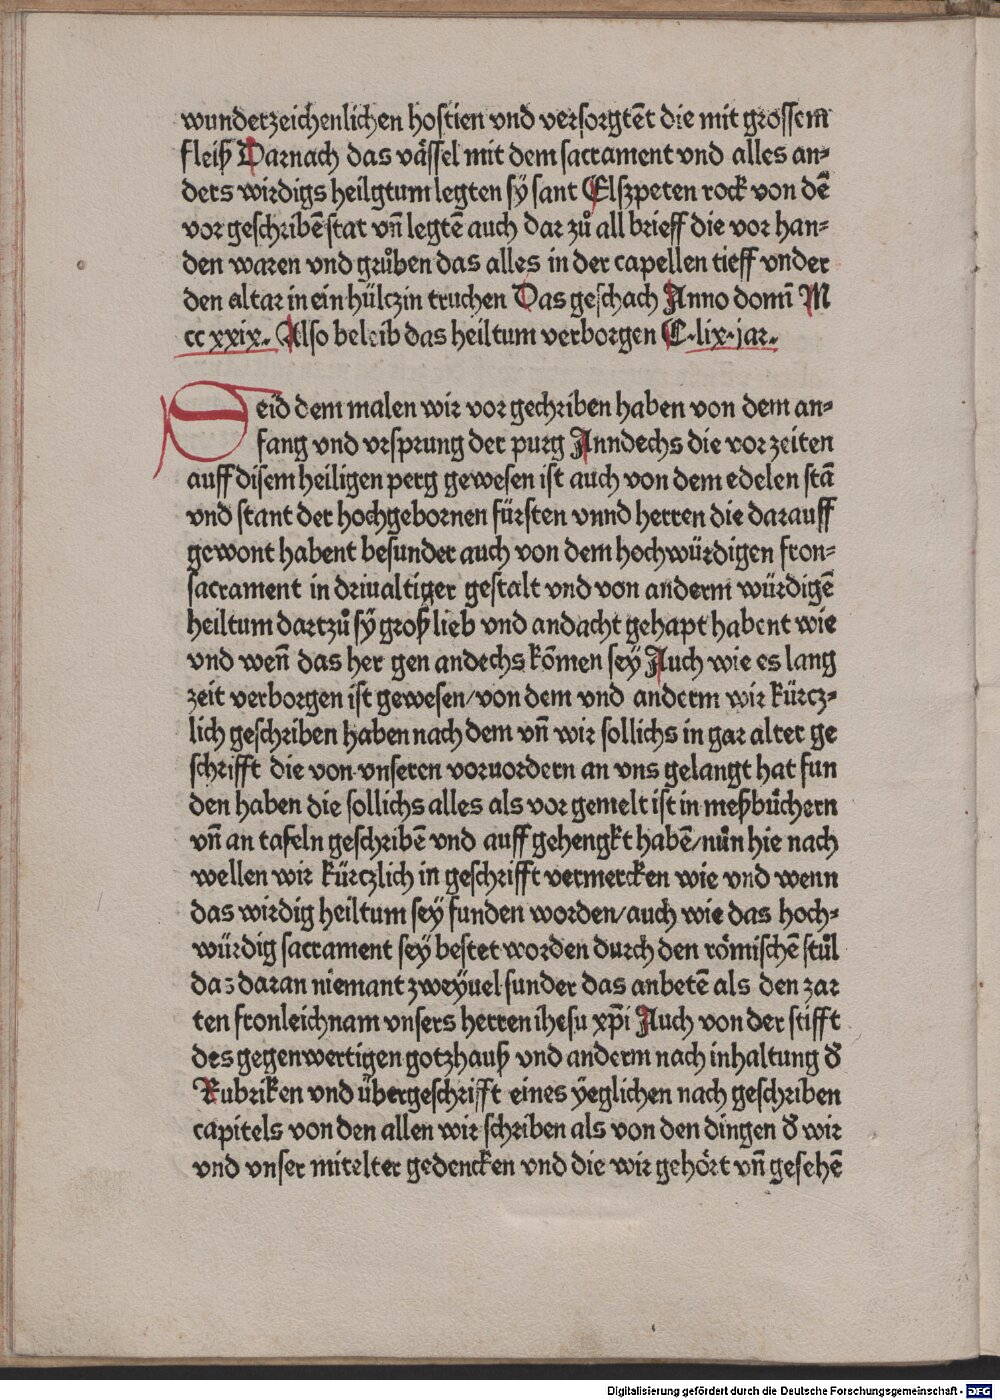 wunderzeichenlichen hostien vnd versorgtēt die mit grossem
fleiß Darnach das vässel mit dem sacrament vnd alles an⸗
ders wirdigs heilgtum legten sÿ sant Elszpeten rock von dē
vor geschribē stat vn̄ legtē auch dar zů all brieff die vor han⸗
den waren vnd grůben das alles in der capellen tieff vnder
den altar in ein hülczin truchen Das geschach Anno domī M
cc xxix. Also beleib das heiltum verborgen C.lix.jar.
Seid dem malen wir vor gechriben haben von dem an⸗
fang vnd vrsprung der purg Anndechs die vor zeiten
auff disem heiligen perg gewesen ist auch von dem edelen stā
vnd stant der hochgebornen fürsten vnnd herren die darauff
gewont habent besunder auch von dem hochwürdigen fron⸗
sacrament in driualtiger gestalt vnd von anderm würdigē
heiltum dartzů sÿ groß lieb vnd andacht gehapt habent wie
vnd wen̄ das her gen andechs kōmen sey Auch wie es lang
zeit verborgen ist gewesen/von dem vnd anderm wir kürcz⸗
lich geschriben haben nach dem vn̄ wir sollichs in gar alter ge
schrifft die von vnseren voruordern an vns gelangt hat fun
den haben die sollichs alles als vor gemelt ist in meßbůchern
vn̄ an tafeln geschribē vnd auff gehengkt habē/nůn hie nach
wellen wir kürczlich in geschrifft vermercken wie vnd wenn
das wirdig heiltum sey funden worden/auch wie das hoch⸗
würdig sacrament sey bestet worden durch den römischē stůl
daz daran niemant zweÿuel sunder das anbetē als den zar
ten fronleichnam vnsers herren ihesu xp̄i Auch von der stifft
des gegenwertigen gotzhauß vnd anderm nach inhaltung d̕
Rubriken vnd übergeschrifft eines ÿeglichen nach geschriben
capitels von den allen wir schriben als von den dingen d̕ wir
vnd vnser mitelter gedencken vnd die wir gehört vn̄ gesehē
Digitalisierung gefördert durch die Deutsche Forschungsgemeinschaft - DFG